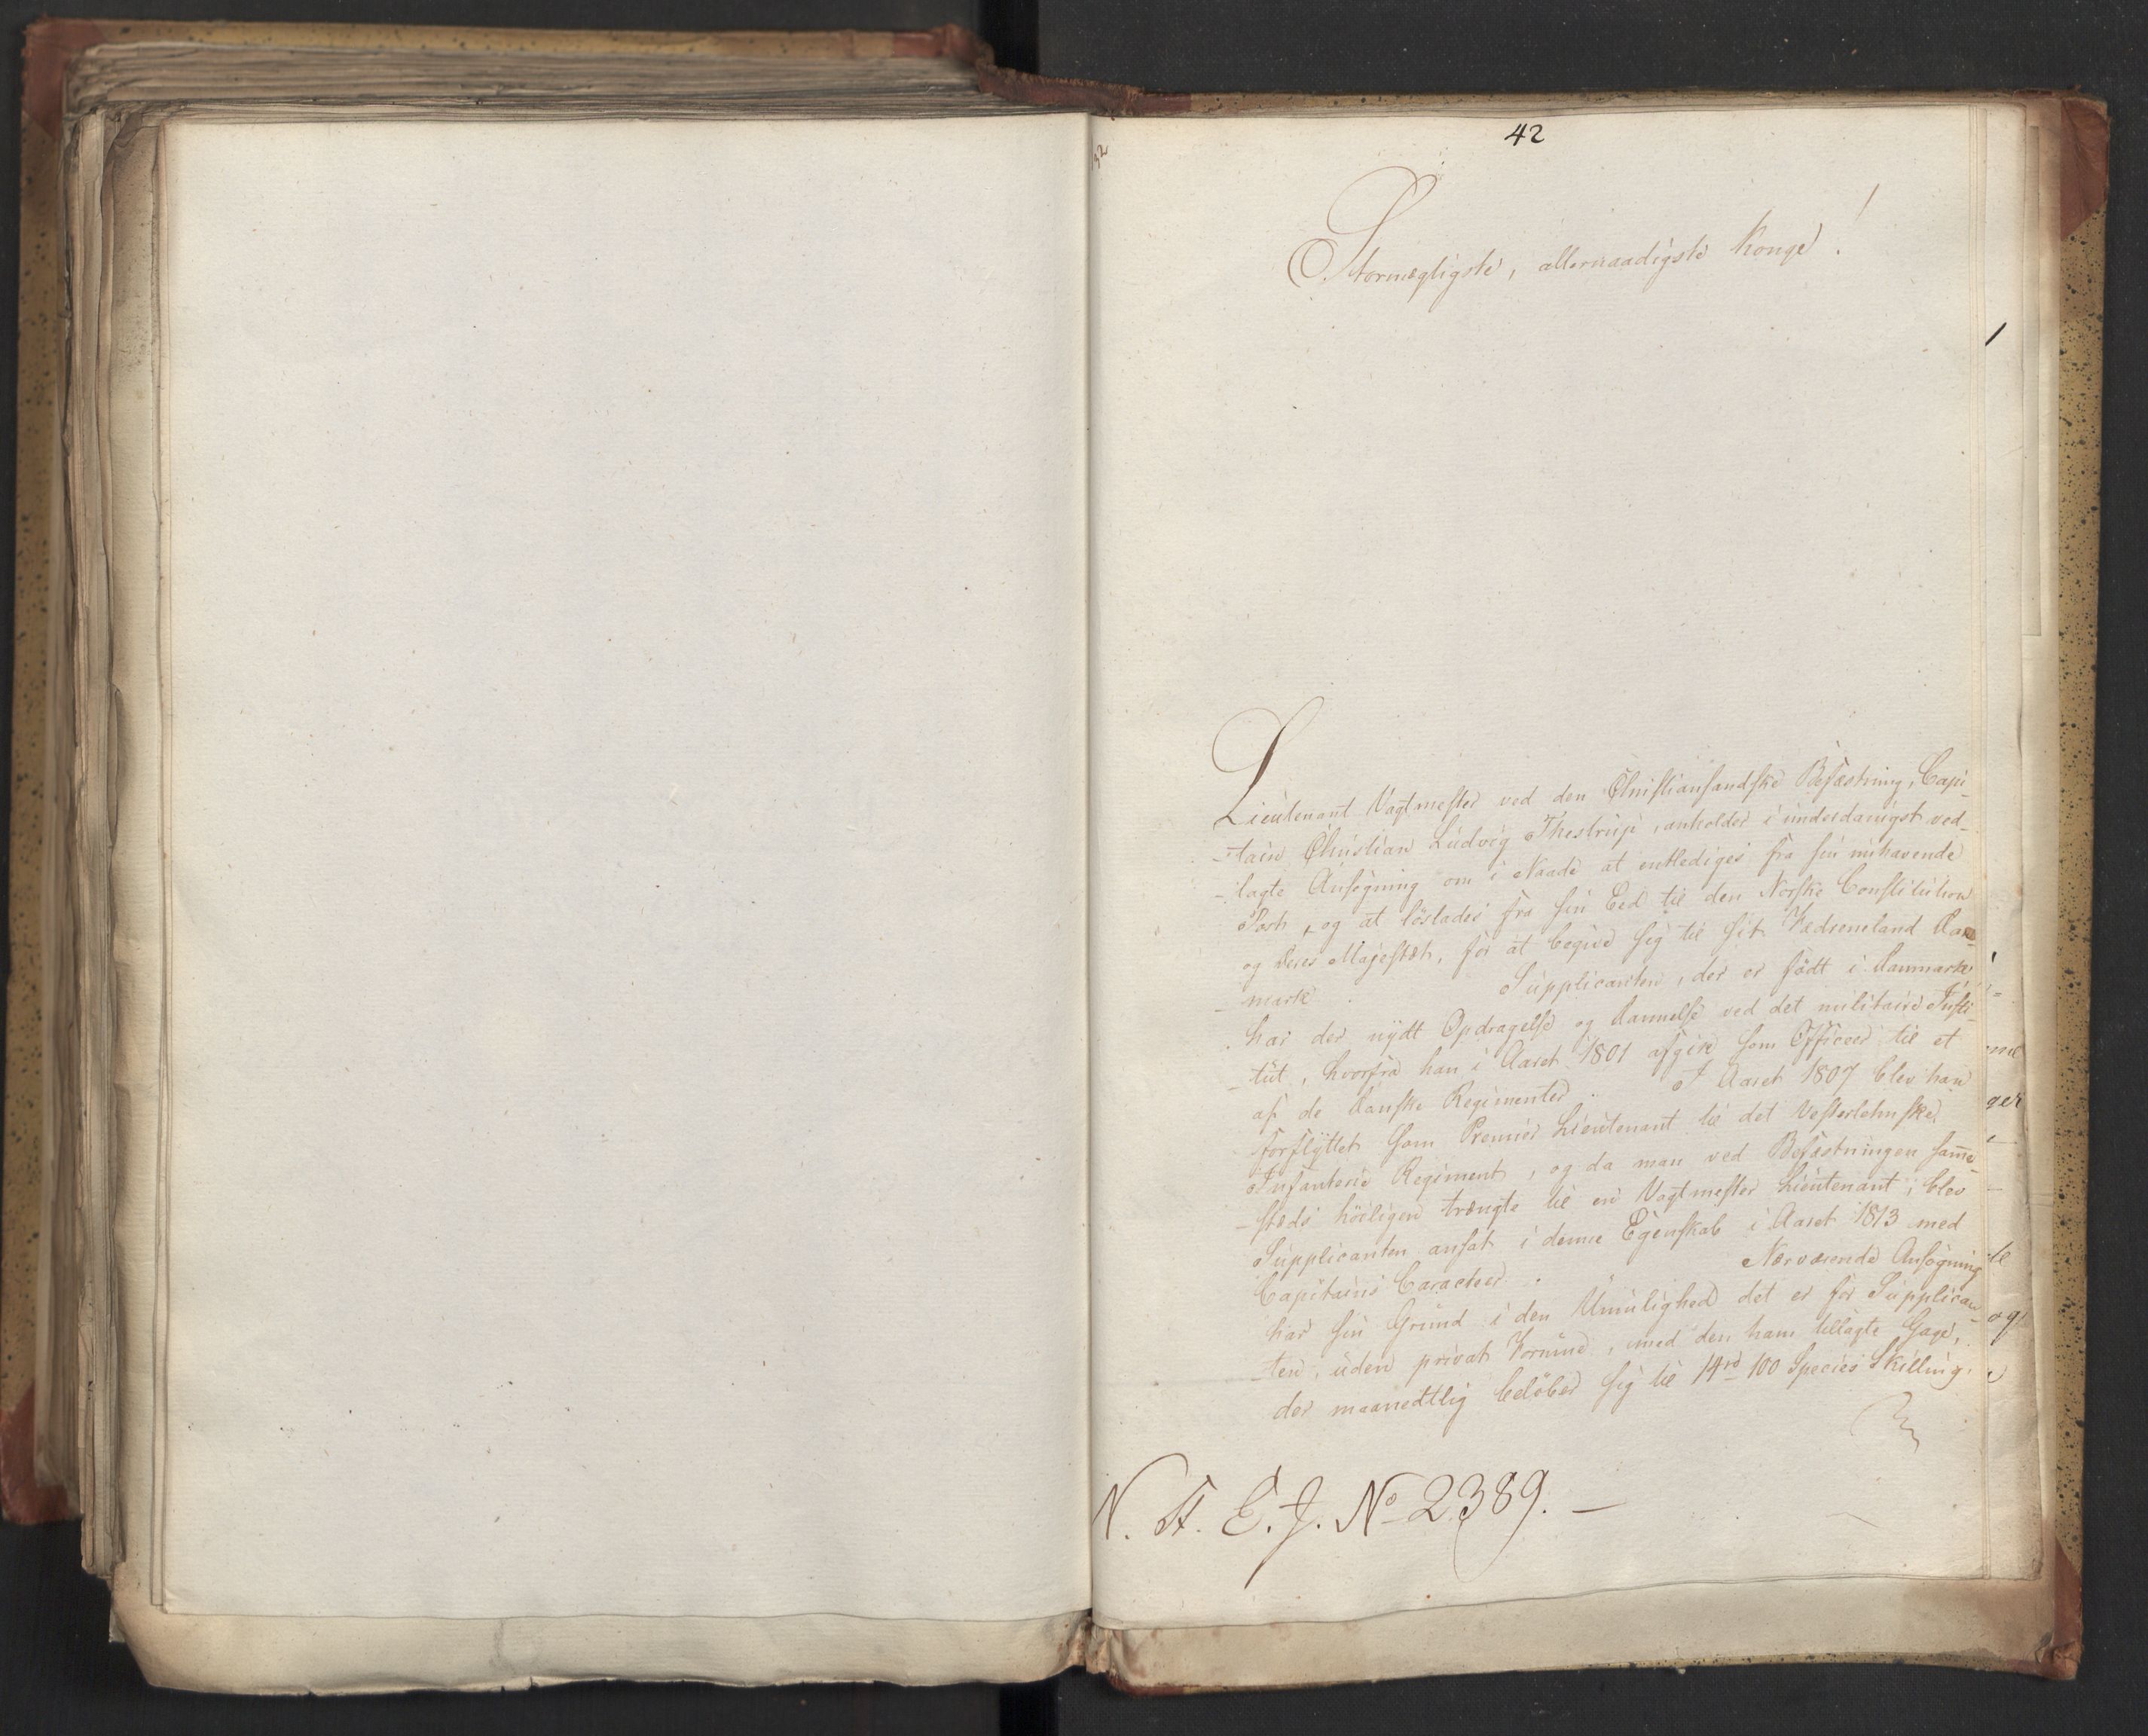 42
Stormægtigste, allernaadigste Konge!
Lieutenant Vagtmester ved den Christiansandske Befæstning, Capi
-tain Christian Ludvig Thestrup, anholder i underdanigst ved-
-lagte Ansøgning om i Naade at entlediges fra sin innhavende
Post, og at løslades fra sin Eed til den Norske Constitution
og Deres Majestæt, for at begive sig til sit Fædreneland Dan
-mark. Supplicanten, der er født i Danmark,
har der nydt Opdragelse og Dannelse ved det militaire Insti-
-tut, hvorfra han i Aaret 1801 afgik som Officeer til et
af de danske Regimenter. I Aaret 1807 blev han
forflyttet som Premier Lieutenant til det Vesterlehnske
Infanterie Regiment, og da man ved Befæstningen samme
-steds høiligen trængte til en Vagtmester Lieutenant, blev
Supplicanten ansat i denne Egenskab i Aaret 1813 med
Capitains Caracteer. Nærværende Ansøgning
har sin Grund i den Umulighed det er for Supplican
-ten, uden privat Formue, med den ham tillagte Gage,
der maanedtlig beløber sig til 14rd 100 Species Skilling,
N. St. E. J. No 2389. —